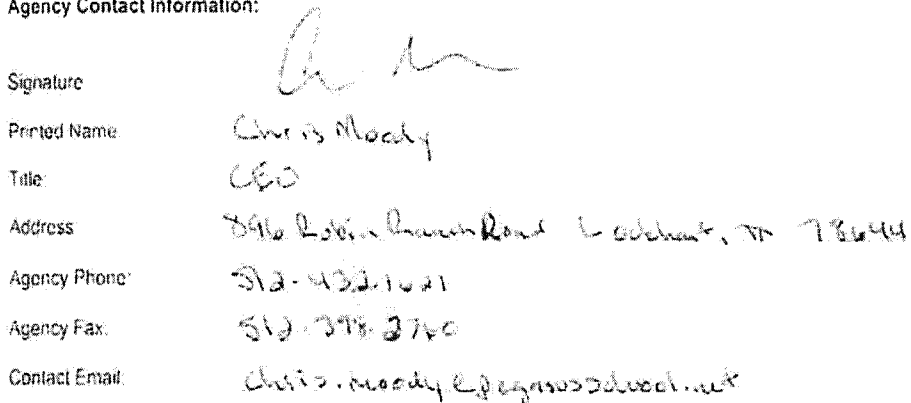 Agency Contact Information:
Signature
Printed Name Chris Moody
Title: CEO
Address 896 Robin Ranch Road Lockhart, TX 78644
Agency Phone: 512-432-1621
Agency Fax: 512-398-2760
Contact Email: chris.moody@pegasusschool.net